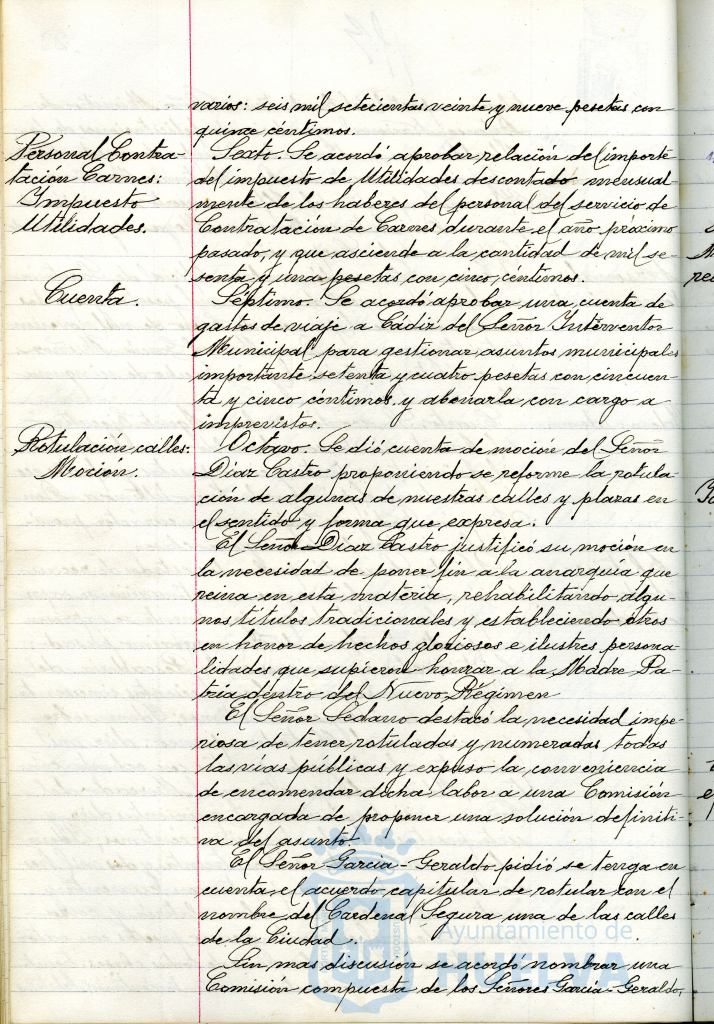 varios: seis mil setecientas veinte y nueve pesetas con
quince céntimos.
Personal Contra-
tación Carnes:
Impuesto
Utilidades.
Sexto. Se acordó aprobar relación del importe
del impuesto de Utilidades descontado mensual
mente de los haberes del personal del servicio de
Contratación de Carnes durante el año próximo
pasado, y que asciende a la cantidad de mil se-
senta y una pesetas con cinco céntimos.
Cuenta.
Séptimo. Se acordó aprobar una cuenta de
gastos de viaje a Cádiz del Señor Interventor
Municipal para gestionar asuntos municipales
importante setenta y cuatro pesetas con cincuen-
ta y cinco céntimos y abonarla con cargo a
imprevistos.
Rotulación calles:
Moción.
Octavo. Se dió cuenta de moción del Señor
Díaz Castro proponiendo se reforme la rotula-
ción de algunas de nuestras calles y plazas en
el sentido y forma que expresa.
El Señor Díaz Castro justificó su moción en
la necesidad de poner fin a la anarquía que
reina en esta materia, rehabilitando algu-
nos títulos tradicionales y estableciendo otros
en honor de hechos gloriosos e ilustres persona-
lidades que supieron honrar a la Madre Pa-
tria dentro del Nuevo Régimen
El Señor Sedano destacó la necesidad impe-
riosa de tener rotuladas y numeradas todas
las vías públicas y expuso la conveniencia
de encomendar dicha labor a una Comisión
encargada de proponer una solución definiti-
va del asunto
El Señor Garcia-Geraldo pidió se tenga en
cuenta el acuerdo capitular de rotular con el
nombre del Cardenal Segura una de las calles
de la Ciudad.
Sin mas discusion se acordó nombrar una
Comisión compuesta de los Señores Garcia-Geraldo,
Ayuntamiento de
HUELVA